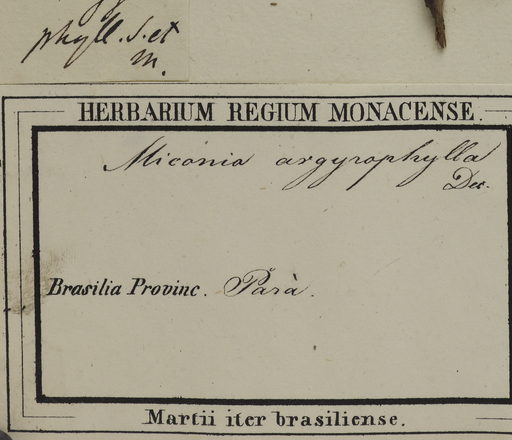 phyll. S. et
m.
HERBARIUM REGIUM MONACENSE.
Miconia argyrophylla
Dec.
Brasilia Provinc. Parà.
Martii iter brasiliense.